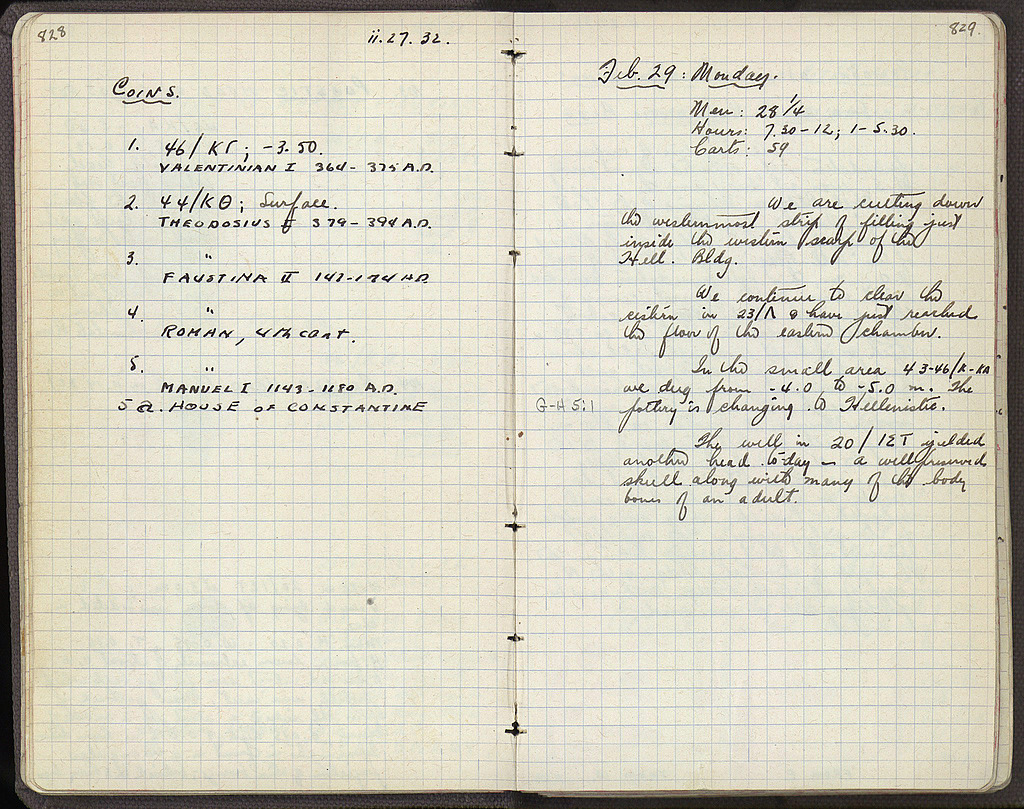 828
ii.27.32.
Coins.
1. 46/ΚΓ; -3.50.
VALENTINIAN I 364-375 A.D.
2. 44/ΚΘ; Surface.
THEODOSIUS I 379-394 A.D.
3. "
FAUSTINA II 147-174 AD
4. "
ROMAN, 4th CENT.
5. "
MANUEL I 1143-1180 A.D.
5a. HOUSE OF CONSTANTINE
829.
Feb. 29: Monday.
Men: 28 1/4
Hours: 7.30-12; 1-5.30.
Carts: 59
We are cutting down
the westernmost strip of filling just
inside the western scarp of the
Hell. Bldg.
We continue to clear the
cistern in 23/Λ & have just reached
the floor of the eastern chamber.
In the small area 43-46/Κ-ΚΑ
we dug from -4.0 to -5.0 m. The
G-H 5:1 pottery is changing to Hellenistic.
The well in 20/ΙΣΤ yielded
another head to-day - a well preserved
skull along with many of the body
bones of an adult.